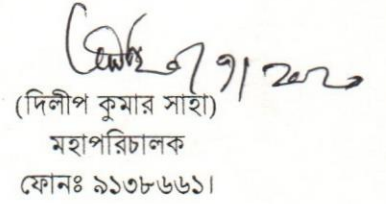 (দিলীপ কুমার সাহা)
মহাপরিচালক
ফোনঃ ৯১৩৮৬৬১।